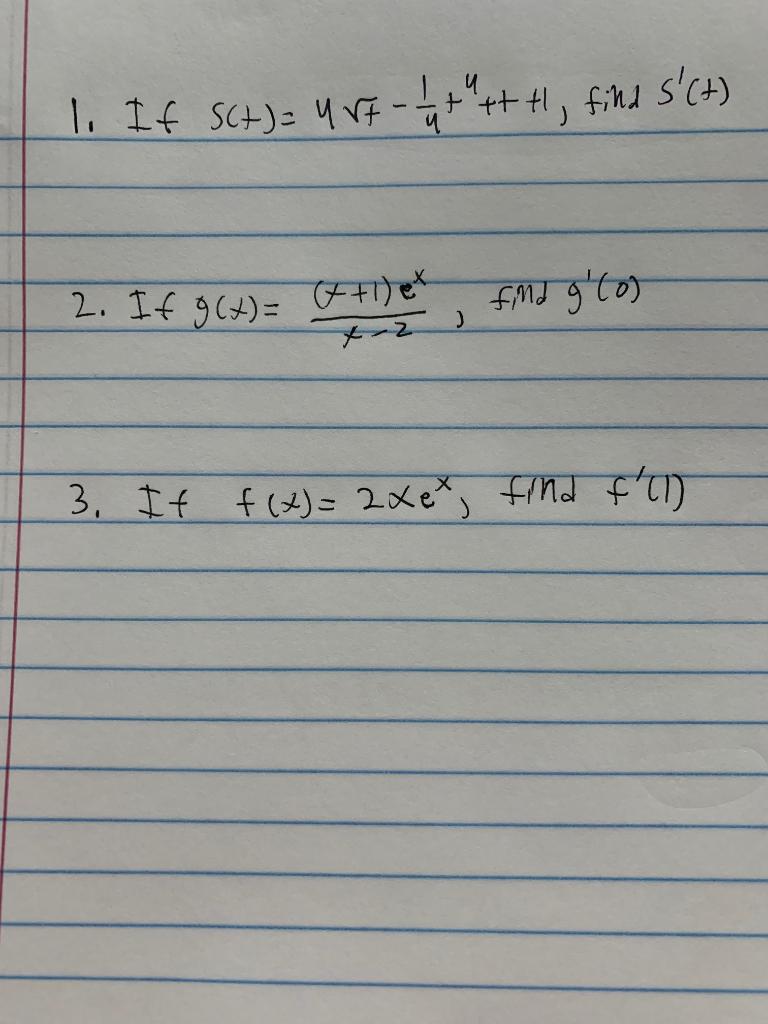 1. If S(t)= 4√t - 1/4 t^4 + t + 1, find S'(t)
2. If g(x)= (x+1)e^x / x-2, find g'(0)
3. If f(x)= 2xe^x, find f'(1)